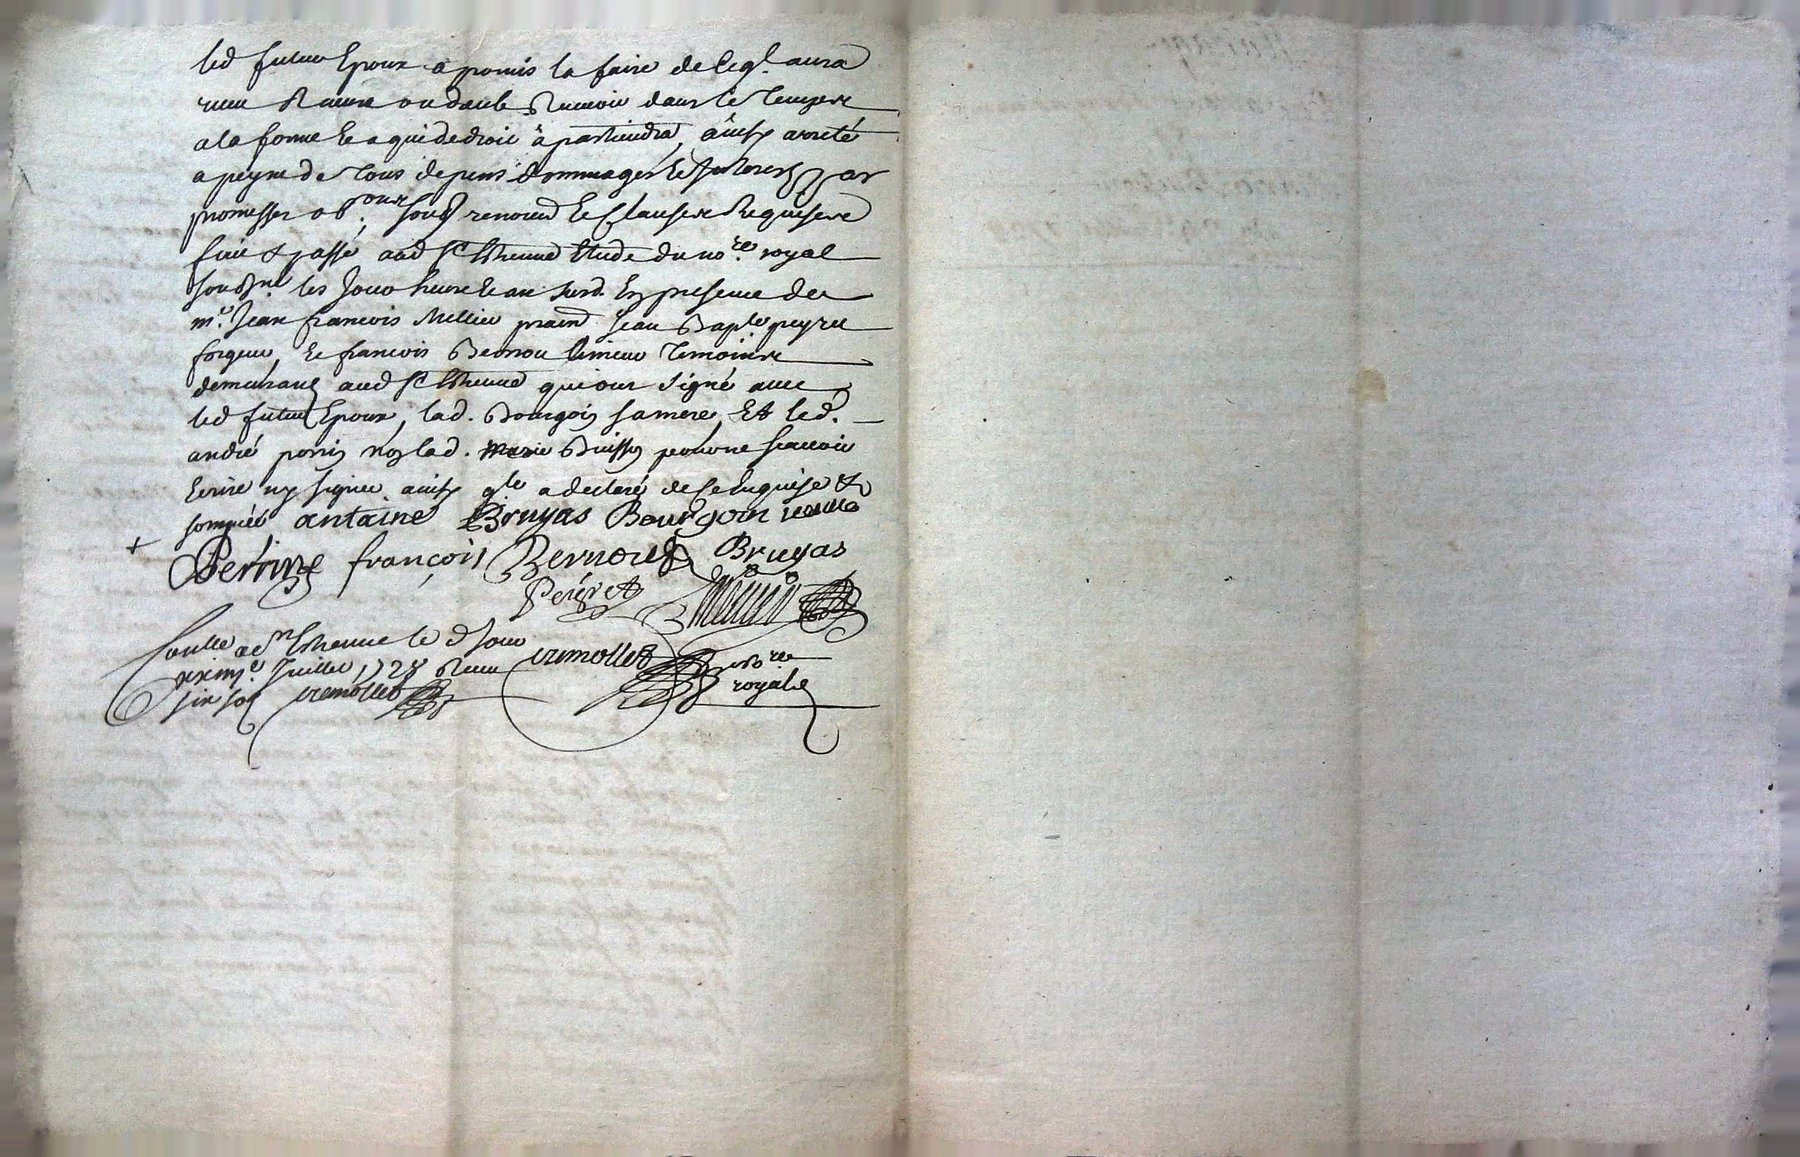 led futur Epoux a promis la faire de ce q.l aura
receu
a la forme Et a qui de droit apartiendra, ainsy arreté
a peyne de tous depens dommages Et Interests par
promesses ob.ons renond Et Clauses Requises
fait & passé aud St Etienne Etude du no.re royal
soubsné les Jour heure Et an susd. En presence de
m.e Jean francois Mellier pratn Jean Bap.te peyret
forgeur, Et francois Bernou temoins
demeurans aud St Etienne qui ont Signé avec
led futur Epoux, lad. Bourgoin sa mere, Et led.
andré perrin non lad. marie Buisson pour ne scavoir
Ecrire ny signer ainsy q.le a declaré de ce Enquise &
sommée antoine Bruyas Bourgoin
Perrin francois Bernou Bruyas
Peiret
Conllé a St Etienne le d Jour
Juillet 1728 Receu
six sols cremollet
cremollet no.re
royal